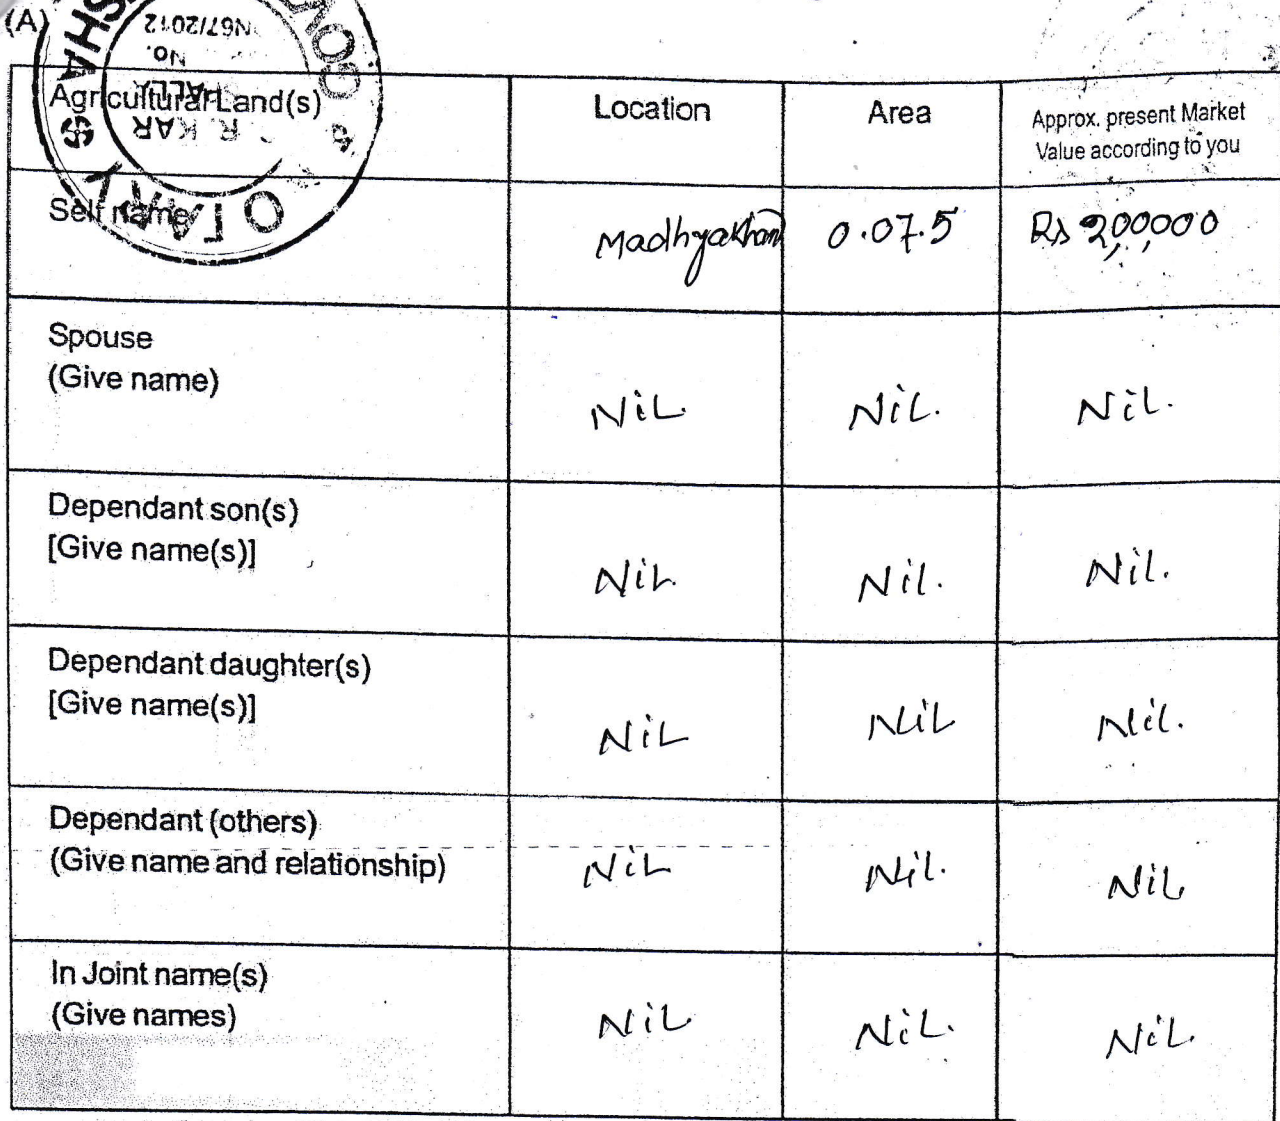 (A)
N67/2012
No.
R. KAR
NOTARY
Agricultural Land(s) Location Area Approx. present Market
Value according to you
Self name Madhyakhand 0.07.5 Rs 2,00,000
Spouse
(Give name) Nil. Nil. Nil.
Dependant son(s)
[Give name(s)] Nil. Nil. Nil.
Dependant daughter(s)
[Give name(s)] Nil Nil Nil.
Dependant (others)
(Give name and relationship) Nil Nil. Nil
In Joint name(s)
(Give names) Nil Nil. Nil.